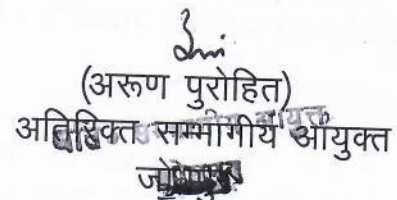 (अरूण पुरोहित)
अतिरिक्त सम्भागीय आयुक्त